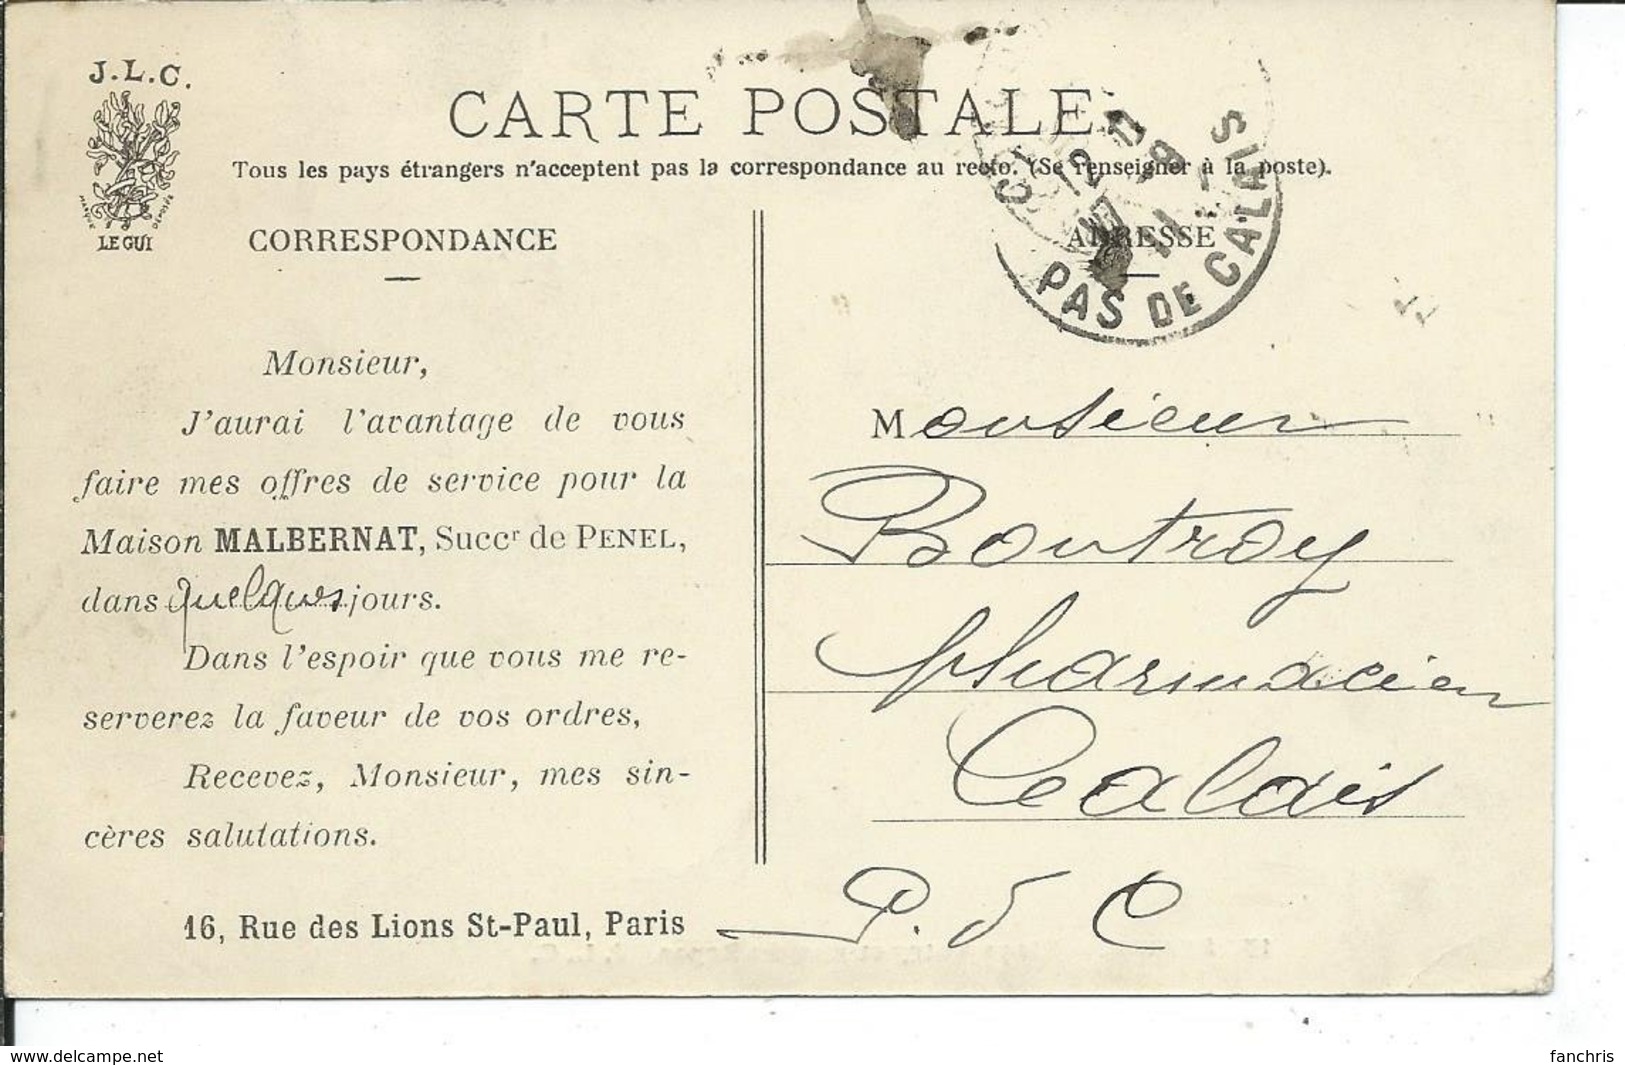 J.L.C.
LE GUI
CARTE POSTALE
Tous les pays étrangers n'acceptent pas la correspondance au recto. (Se renseigner à la poste).
CORRESPONDANCE
Monsieur,
J'aurai l'avantage de vous
faire mes offres de service pour la
Maison MALBERNAT, Succr de PENEL,
dans quelques jours.
Dans l'espoir que vous me re-
serverez la faveur de vos ordres,
Recevez, Monsieur, mes sin-
cères salutations.
16, Rue des Lions St-Paul, Paris
ADRESSE
PAS DE CALAIS
Monsieur
Boutroy
pharmacien
Calais
P. d C
www.delcampe.net
fanchris